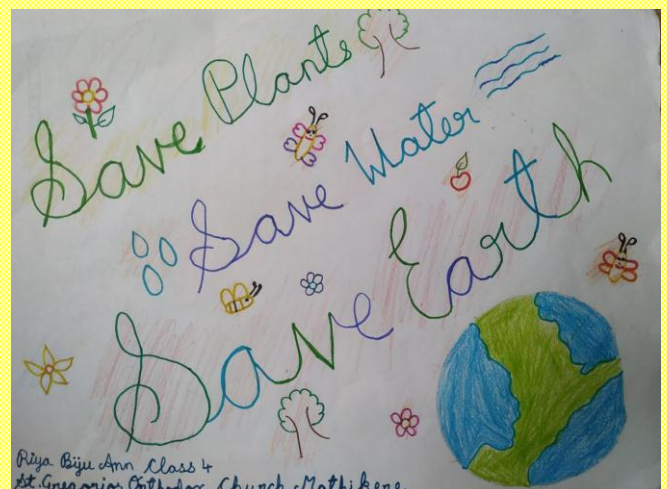 Save Plants
Save Water
Save Earth
Riya Biju Ann Class 4
St. Gregorios Orthodox Church Mathikere